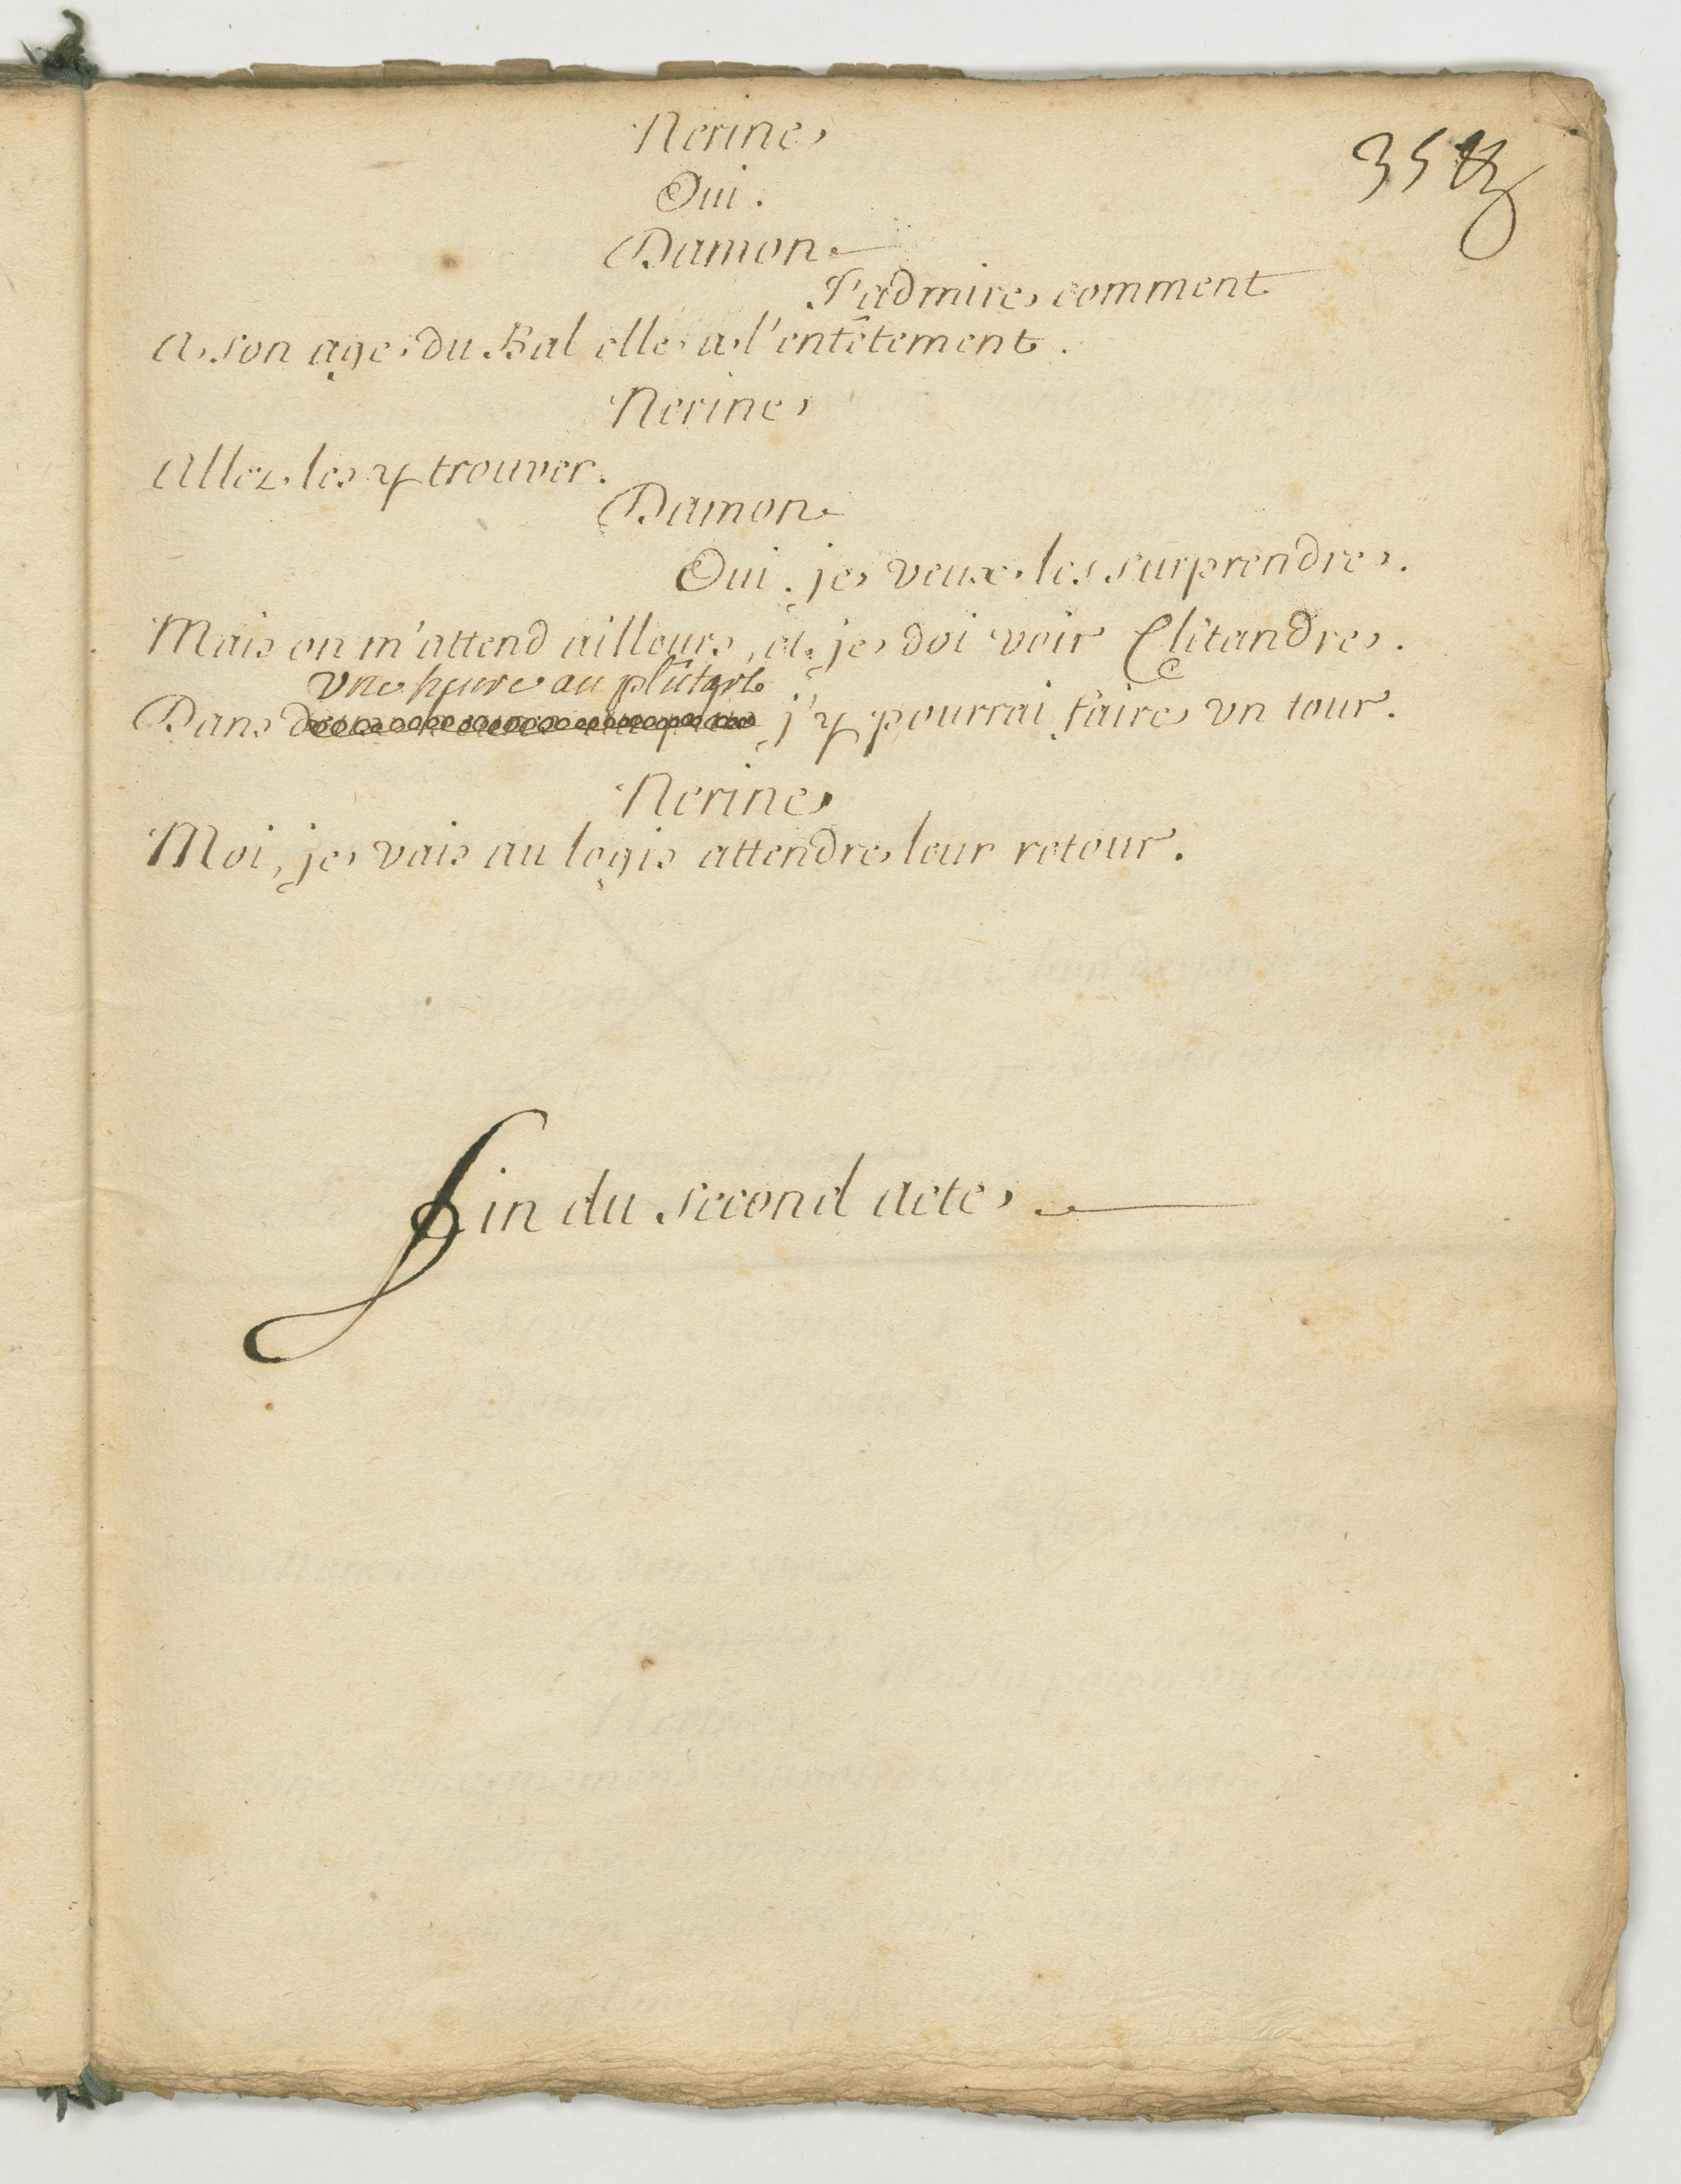 Nerine
35
Oui.
Damon
J'admire comment
A son age du Bal elle a l'entêtement.
Nerine
Allez les y trouver.
Damon
Oui. je veux les surprendre.
Mais on m'attend ailleurs, et je doi voir Clitandre.
Vne heure au plûtard
Dans j'y pourrai faire vn tour.
Nerine
Moi, je vais au logis attendre leur retour.
Fin du second acte